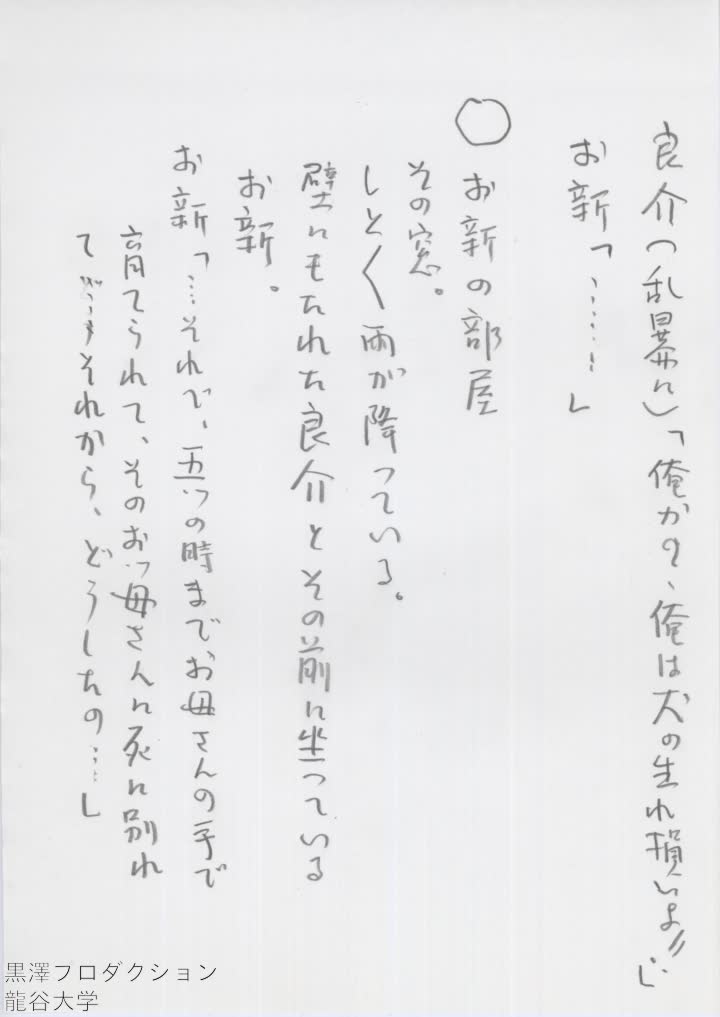 良介(乱暴に)「俺かの、俺は犬の生れ損いよ〃」
お新「……」
○お新の部屋
その窓。
しと〱雨が降っている。
壁にもたれた良介とその前に坐っている
お新。
お新「…それで、五つの時までお母さんの手で
育てられて、そのお母さんに死に別れ
て……それから、どうしたの…」
黒澤フロダクション
龍谷大学